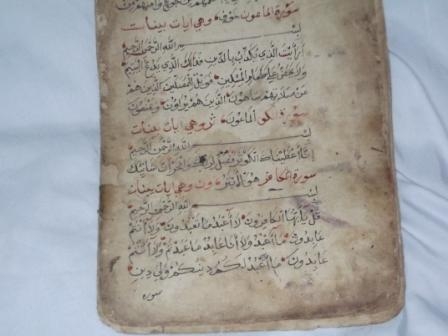 سورة الماعون خوف وهي ايات بينات
بسم الله الرحمن الرحيم
ارايت الذي يكذب بالدين فذلك الذي يدع اليتيم
ولا يحض على طعام المسكين فويل للمصلين الذين هم
عن صلاتهم ساهون الذين هم يراؤن ويمنعون
سورة الكو الماعون ثر وهي ايات بينات
بسم الله الرحمن الرحيم
انا اعطيناك الكوثر فصل لربك وانحر ان شانئك
سورة الكافر هو الابتر ون وهي ايات بينات
بسم الله الرحمن الرحيم
قل يا ايها الكافرون لا اعبد ما تعبدون ولا انتم
عابدون ما اعبد ولا انا عابد ما عبدتم ولا انتم
عابدون ما اعبد لكم دينكم ولي دين
سورة